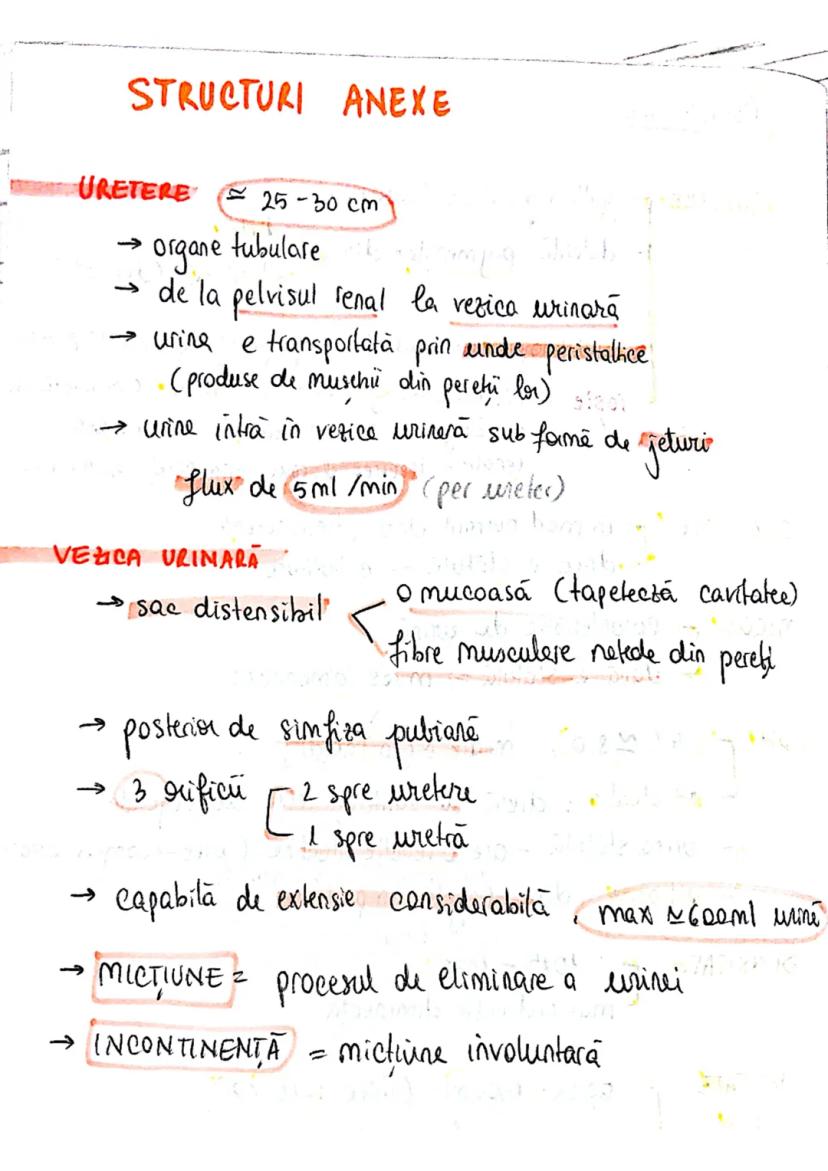 STRUCTURI ANEXE
URETERE ≃ 25-30 cm
→ organe tubulare
→ de la pelvisul renal la vezica urinară
→ urina e transportată prin unde peristaltice
(produse de mușchii din pereții lor)
→ urina intră în vezica urinară sub formă de jeturi
flux de 5ml/min (per ureter)
VEZICA URINARĂ
→ sac distensibil
o mucoasă (tapetează cavitatea)
fibre musculare netede din pereți
→ posterior de simfiza pubiană
→ 3 orificii
2 spre uretere
1 spre uretră
→ capabilă de extensie considerabilă, max ≃600ml urină
→ MICȚIUNE = procesul de eliminare a urinei
→ INCONTINENȚĂ = micțiune involuntară